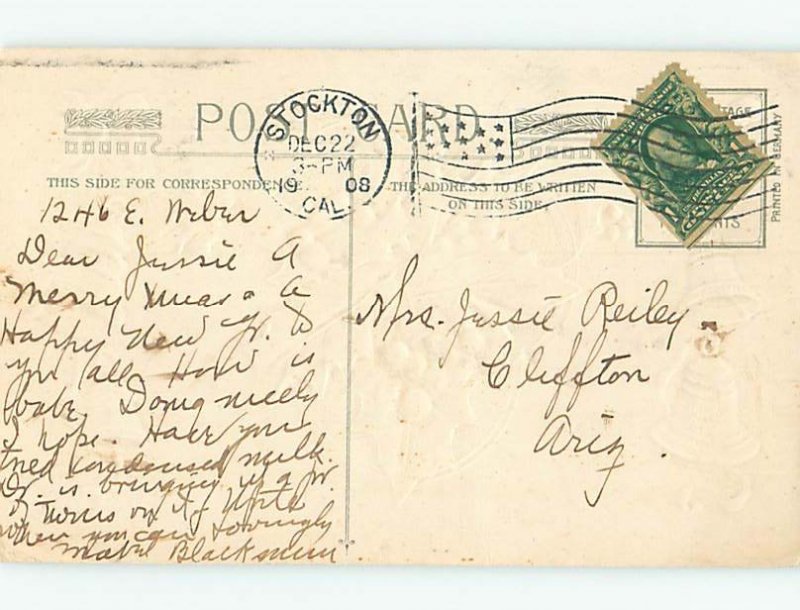 POST CARD
STOCKTON
DEC 22
3-PM
19 08
CAL.
THIS SIDE FOR CORRESPONDENCE.
THE ADDRESS TO BE WRITTEN
ON THIS SIDE.
PRINTED IN GERMANY
1246 E. Weber
Dear Jessie A
Merry Xmas & a
Happy New Yr. to
you all. How is
babe. Doing nicely
I hope. Have you
tried condensed milk.
Dr. is bringing up a pr.
of twins on it. Write
when you can Lovingly
Mabel Blackmun
Mrs. Jessie Reiley.
Cliffton
Ariz.